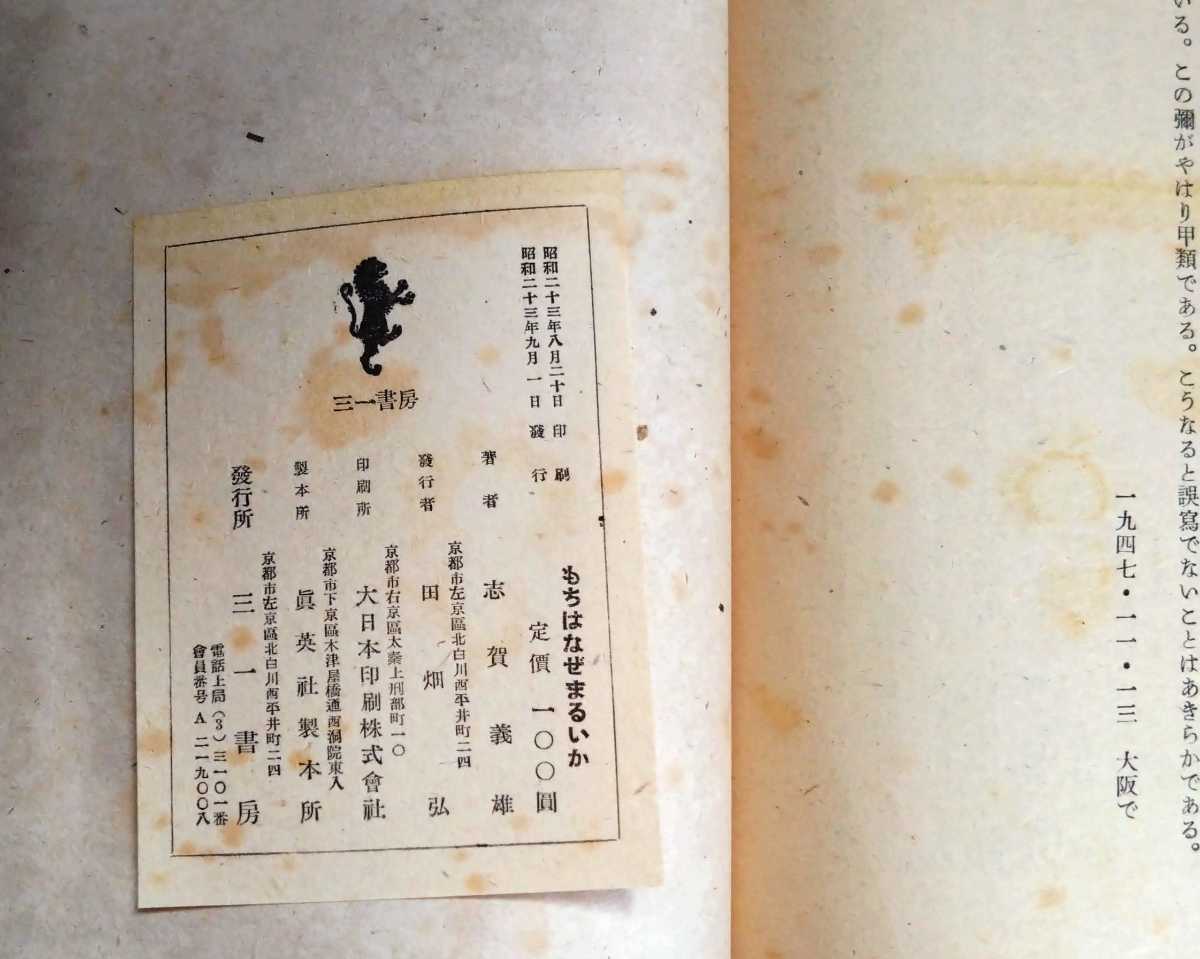 いる。この彌がやはり甲類である。こうなると誤寫でないことはあきらかである。
一九四七・一一・一三　大阪で
昭和二十三年八月二十日　印刷
昭和二十三年九月　一日　發行
もちはなぜまるいか
定價　一〇〇圓
著者　志賀義雄
京都市左京區北白川西平井町二四
發行者　田畑弘
京都市右京區太秦上刑部町一〇
印刷所　大日本印刷株式會社
京都市下京區木津屋橋通西洞院東入
製本所　眞英社製本所
京都市左京區北白川西平井町二四
發行所　三一書房
電話上局（3）三一〇一番
會員番号　A　二一九〇〇八
三一書房